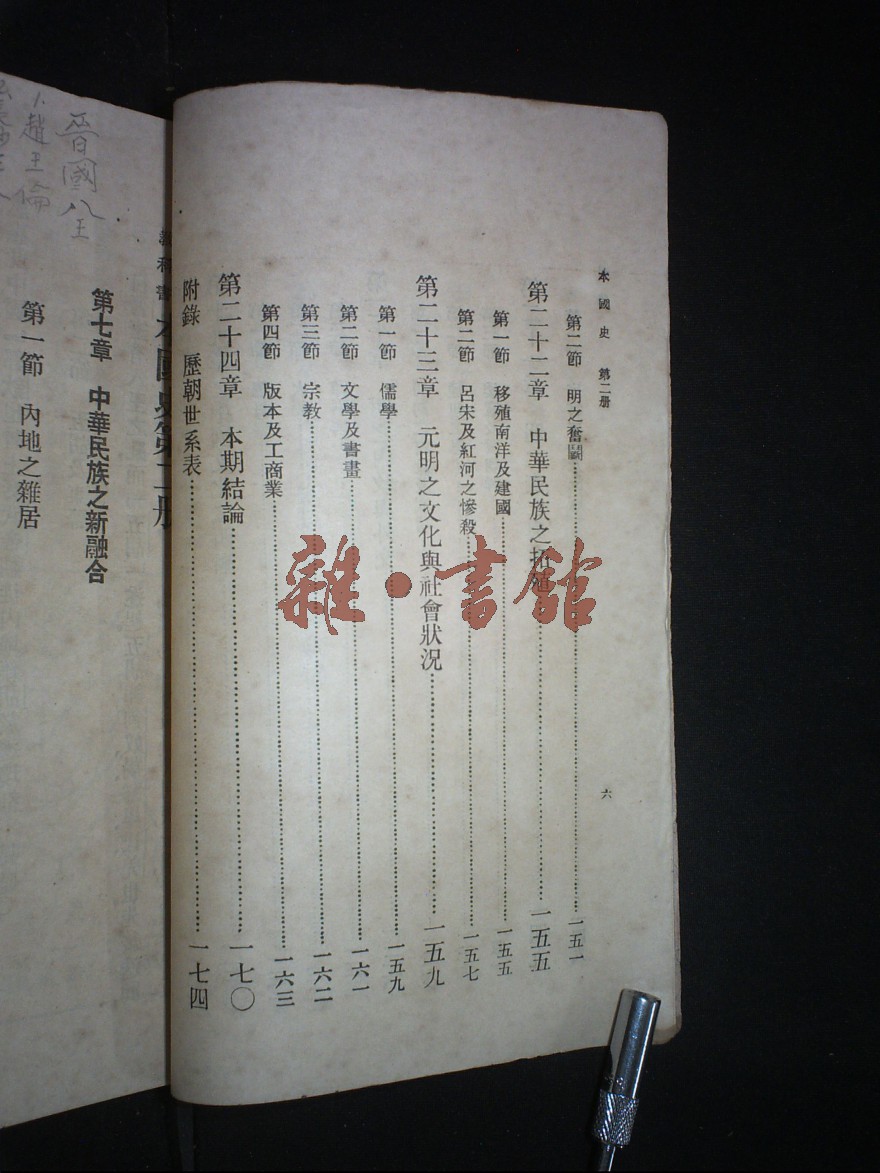 本國史 第二册
六
第二節 明之奮鬭……一五一
第二十二章 中華民族之拓殖……一五五
第一節 移殖南洋及建國……一五五
第二節 呂宋及紅河之慘殺……一五七
第二十三章 元明之文化與社會狀況……一五九
第一節 儒學……一五九
第二節 文學及書畫……一六一
第三節 宗教……一六二
第四節 版本及工商業……一六三
第二十四章 本期結論……一七〇
附錄 歷朝世系表……一七四
雜·書館
教科書 本國史第二册
第七章 中華民族之新融合
第一節 內地之雜居
晉國八王
趙王倫